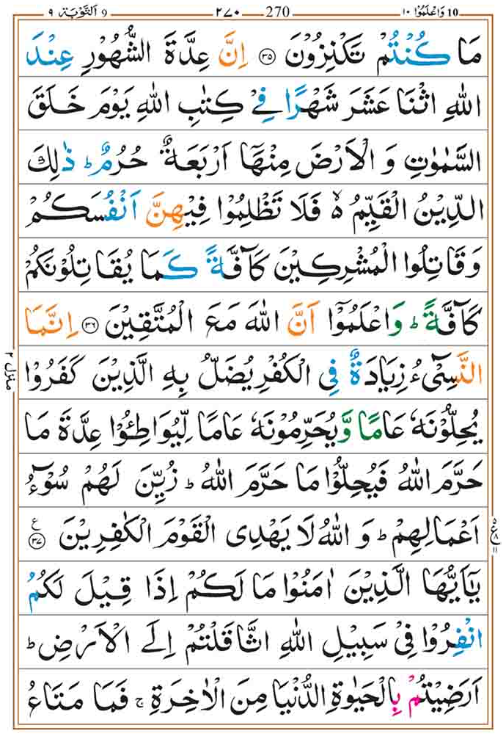 التوبة ٩ 9 ٢٧٠ 270 واعلموا ١٠ 10
مَا كُنْتُمْ تَكْنِزُوْنَ ﴿۳۵﴾ اِنَّ عِدَّةَ الشُّهُوْرِ عِنْدَ
اللّٰهِ اثْنَا عَشَرَ شَهْرًا فِيْ كِتٰبِ اللّٰهِ يَوْمَ خَلَقَ
السَّمٰوٰتِ وَ الْاَرْضَ مِنْهَاۤ اَرْبَعَةٌ حُرُمٌ ؕ ذٰلِكَ
الدِّيْنُ الْقَيِّمُ ۙ۬ فَلَا تَظْلِمُوْا فِيْهِنَّ اَنْفُسَكُمْ
وَ قَاتِلُوا الْمُشْرِكِيْنَ كَآفَّةً كَمَا يُقَاتِلُوْنَكُمْ
كَآفَّةً ؕ وَ اعْلَمُوْۤا اَنَّ اللّٰهَ مَعَ الْمُتَّقِيْنَ ﴿۳۶﴾ اِنَّمَا
النَّسِيْٓءُ زِيَادَةٌ فِي الْكُفْرِ يُضَلُّ بِهِ الَّذِيْنَ كَفَرُوْا
يُحِلُّوْنَهٗ عَامًا وَّ يُحَرِّمُوْنَهٗ عَامًا لِّيُوَاطِـُٔوْا عِدَّةَ مَا
حَرَّمَ اللّٰهُ فَيُحِلُّوْا مَا حَرَّمَ اللّٰهُ ؕ زُيِّنَ لَهُمْ سُوْٓءُ
اَعْمَالِهِمْ ؕ وَ اللّٰهُ لَا يَهْدِي الْقَوْمَ الْكٰفِرِيْنَ ﴿۳۷﴾
يٰۤاَيُّهَا الَّذِيْنَ اٰمَنُوْا مَا لَكُمْ اِذَا قِيْلَ لَكُمُ
انْفِرُوْا فِيْ سَبِيْلِ اللّٰهِ اثَّاقَلْتُمْ اِلَى الْاَرْضِ ؕ
اَرَضِيْتُمْ بِالْحَيٰوةِ الدُّنْيَا مِنَ الْاٰخِرَةِ ۚ فَمَا مَتَاعُ
منزل ٢